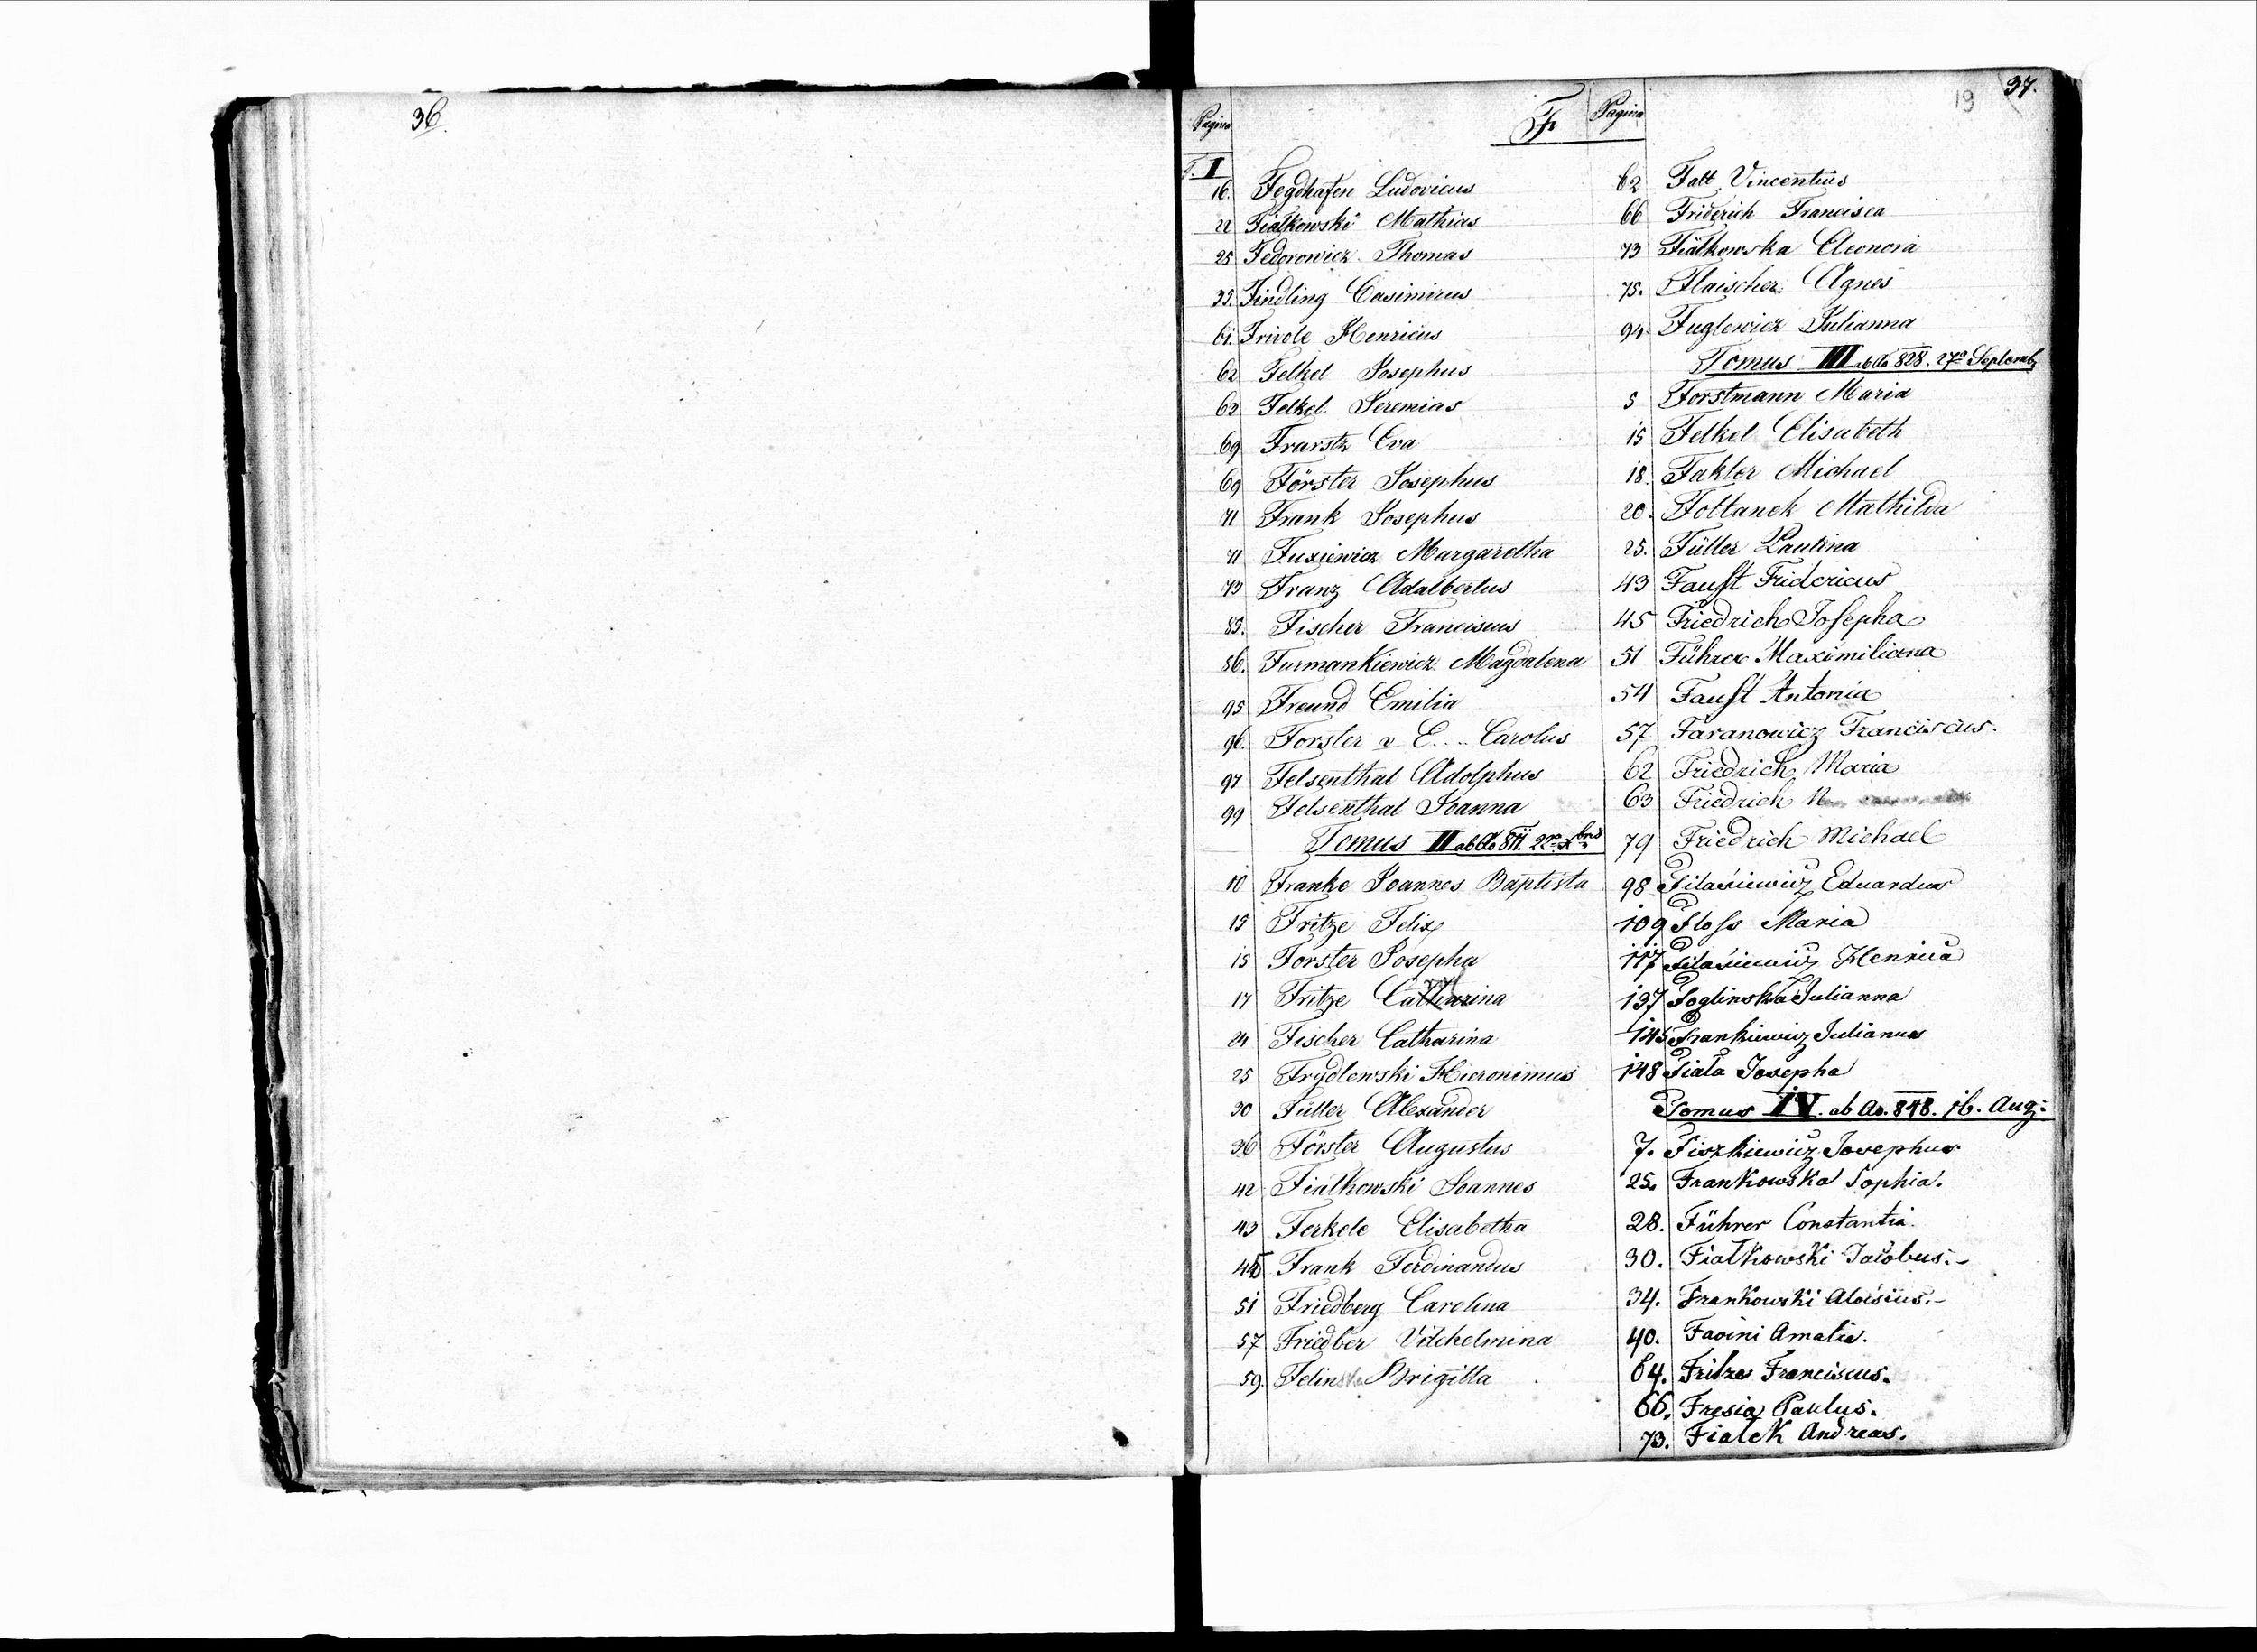 36.
37.
19
Pagina
F
Pagina
T. I
16. Fegdhafen Ludovicus
22 Fiałkowski Mathias
25 Fedorowicz Thomas
35. Findling Casimirus
61. Frivole Henricus
62 Felkel Josephus
63 Felkel Jeremias
69 Frarstz Eva
69 Förster Josephus
71 Frank Josephus
71 Fuxiewicz Margaretha
73 Franz Adalbertus
83. Fischer Franciscus
86. Furmankiewicz Magdalena
95 Freund Emilia
96. Forster v E.... Carolus
97 Felsenthal Adolphus
99 Felsenthal Joanna
Tomus II ab Ao 811. 22 Xbris
10 Franke Joannes Baptista
15 Fritze Felix
15 Forster Josepha
17 Fritze Catharina
24 Fischer Catharina
25 Frydlewski Hieronimus
30 Füller Alexander
36 Förster Augustus
42 Fiałkowski Joannes
43 Ferkele Elisabetha
45 Frank Ferdinandus
51 Friedberg Carolina
57 Friedber Vilhelmina
59. Felinska Brigitta
62 Falt Vincentius
66 Friderich Francisca
73 Fiałkowska Eleonora
75. Flaischer Agnes
94 Fuglewicz Julianna
Tomus III ab Ao 828. 27a Septemb
5 Forstmann Maria
15 Felkel Elisabeth
18. Fakler Michael
20. Foltanek Mathilda
25. Füller Paulina
43 Faust Fridericus
45 Friedrich Josepha
51 Führer Maximiliana
54 Faust Antonia
57 Faranowicz Franciscus.
62 Friedrich Maria
63 Friedrich
79 Friedrich Michael
98 Filasiewicz Eduardus
109 Floss Maria
117 Filasiewicz Henrica
137 Foglinska Julianna
145 Frankiewicz Julianus
148 Fiala Josepha
Tomus IV. ab Ao. 848. 16. Aug:
7. Fiszkiewicz Josephus.
25. Frankowska Sophia.
28. Führer Constantia.
30. Fiałkowski Jacobus.-
34. Frankowski Aloisius.-
40. Favini Amalie.
64. Fritze Franciscus.
66. Fresia Paulus.
73. Fiałek Andreas.